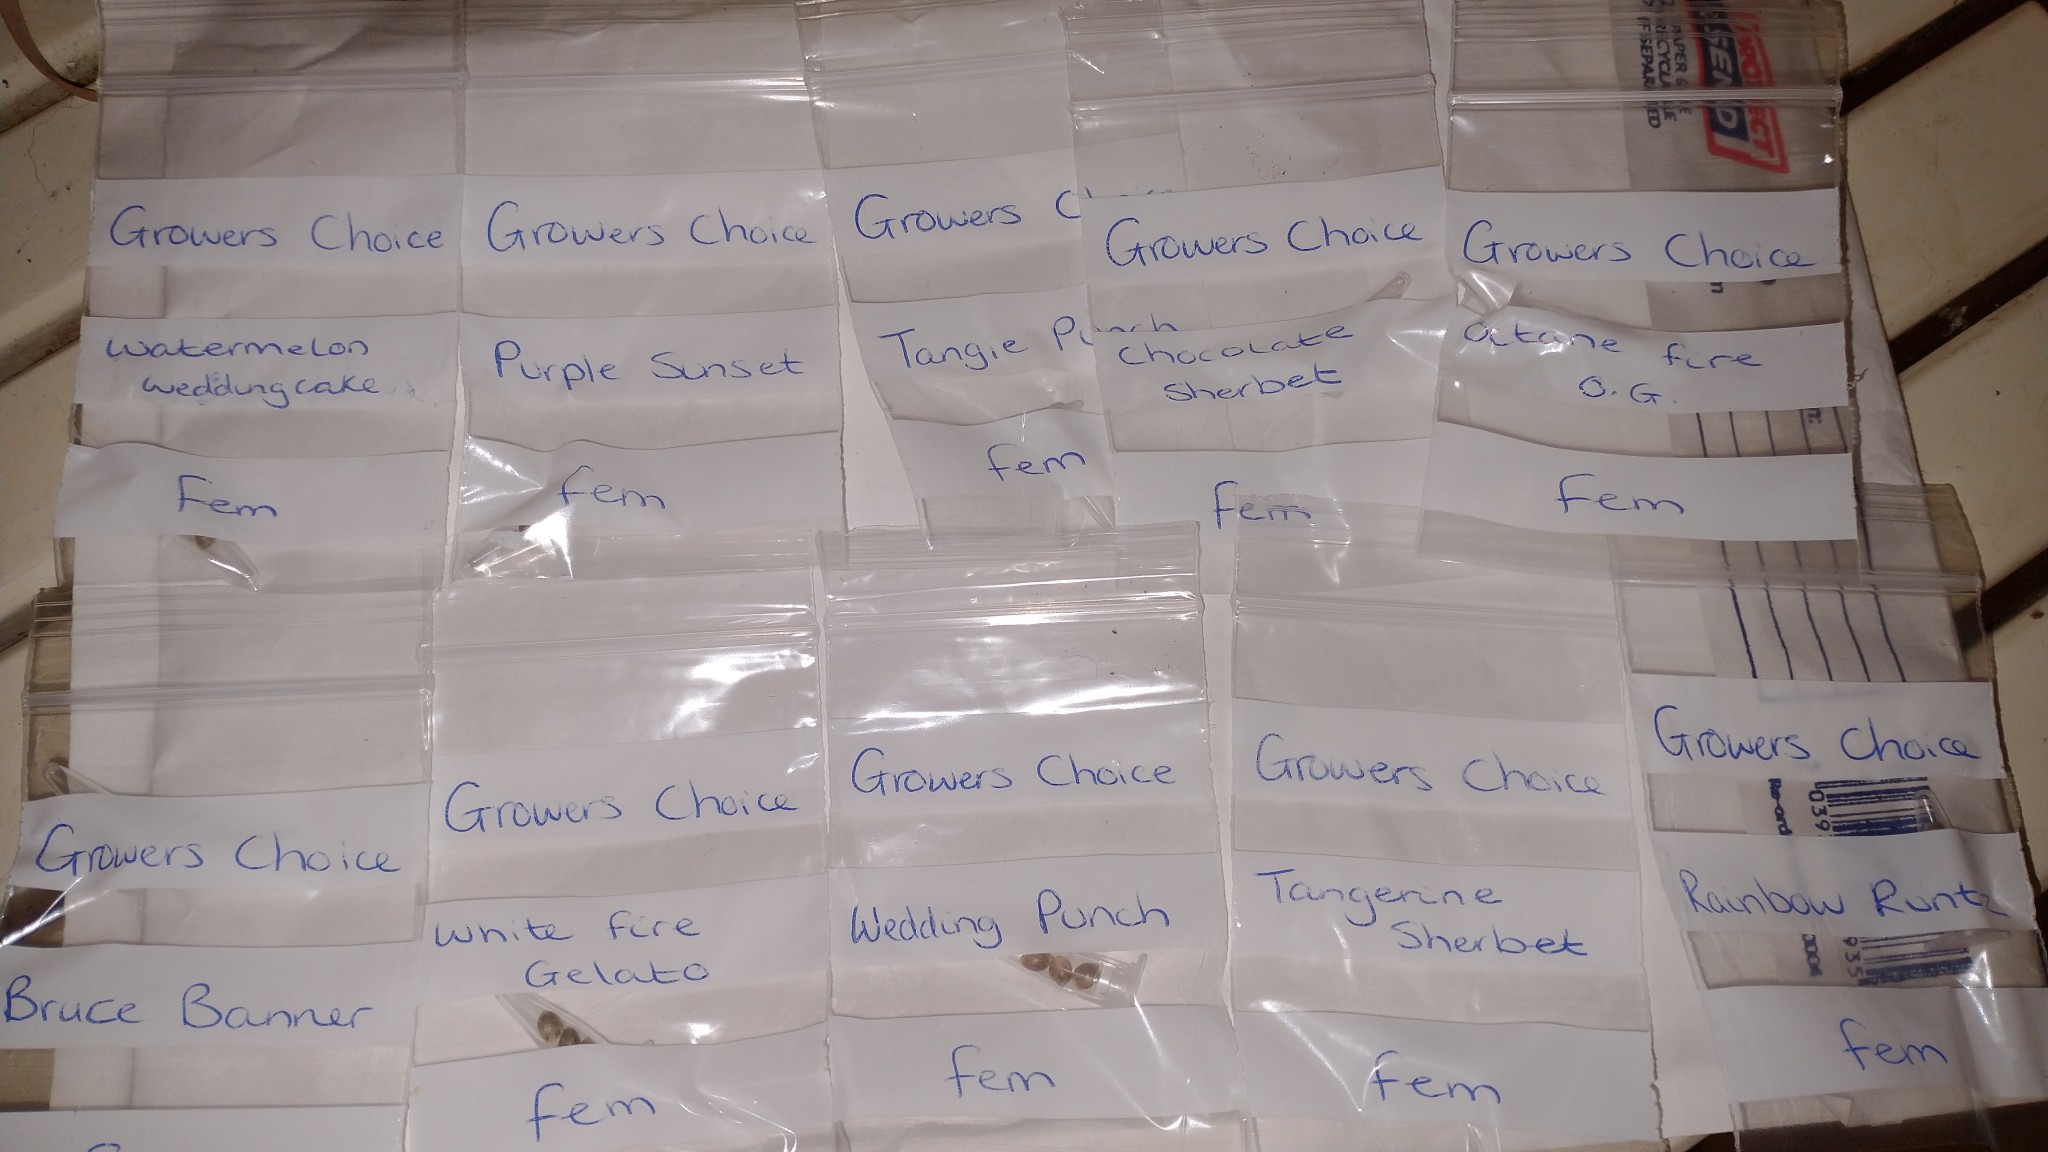 Growers Choice
Watermelon
Weddingcake
Fem
Growers Choice
Purple Sunset
fem
Growers
Tangie Punch
fem
Growers Choice
Chocolate
Sherbet
fem
Growers Choice
Octane fire
O.G.
Fem
Growers Choice
Bruce Banner
Growers Choice
White fire
Gelato
fem
Growers Choice
Wedding Punch
fem
Growers Choice
Tangerine
Sherbet
fem
Growers Choice
Rainbow Runtz
fem